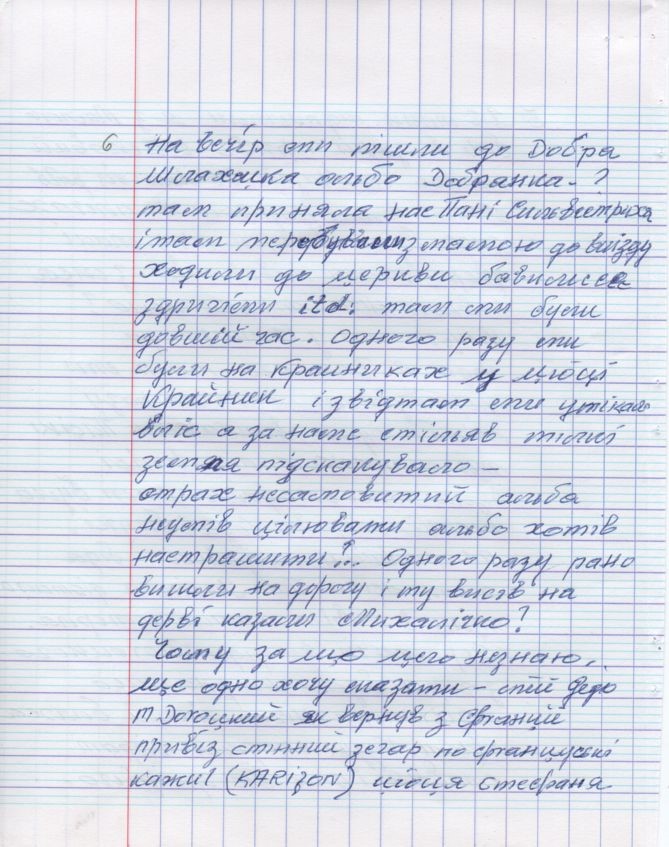 6 На вечір ми пішли до Добра
Шляхоцка альбо Добранка - ?
там приняла нас Пані Сильвестриха
і там перебували з мамою до виїзду
ходили до церкви бавилися
itd. там ми були
довший час. Одного разу ми
були на Крайниках у цюці
Крайник і звідтам ми утікали
в ліс а за нами стріляв тілкі
земля підскакувало –
страх несамовитий альбо
неумів цілювати альбо хотів
настрашити!.. Одного разу рано
вишли на дорогу і ту висів на
дерві казали Михалічко?
Чому за що цего незнаю,
ще одно хочу сказати – мій Дедо
М Дотоцкий як вернув з Франції
привіз стінний зегар по француські
кажи (KARIZON) цюця Стефаня